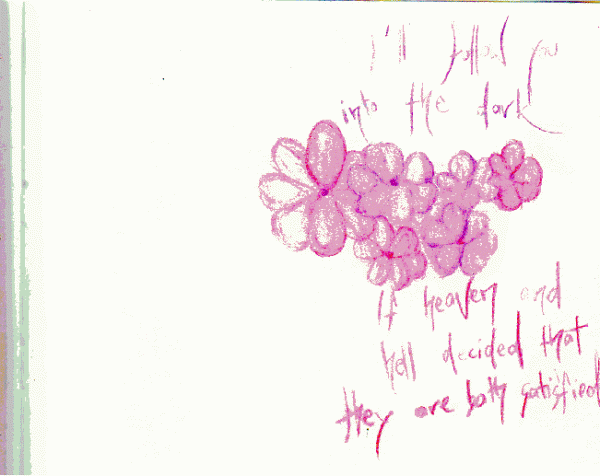 I'll follow you
into the dark
If heaven and
hell decided that
they are both satisfied